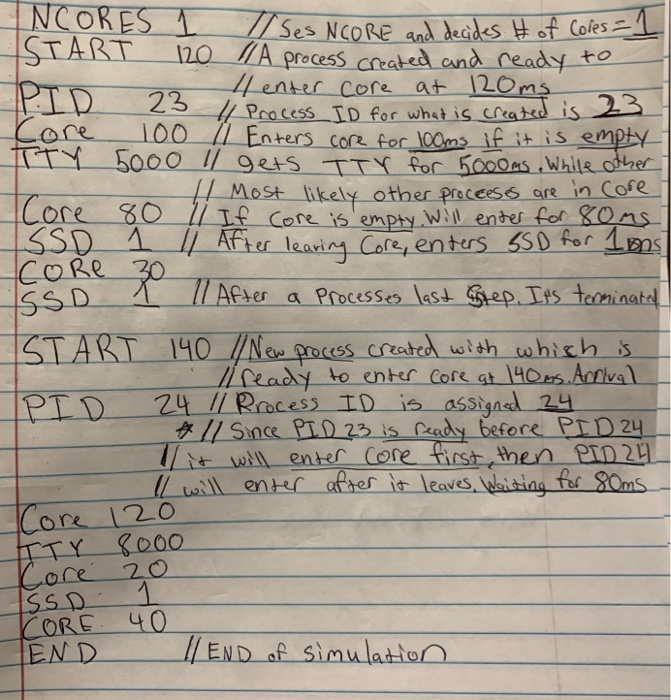 NCORES 1 // Ses NCORE and decides # of Cores = 1
START 120 // A process created and ready to
// enter core at 120ms
PID 23 // Process ID for what is created is 23
Core 100 // Enters core for 100ms if it is empty
TTY 5000 // gets TTY for 5000ms. While other
// Most likely other proceeses are in core
Core 80 // If Core is empty. Will enter for 80ms
SSD 1 // After learing Core, enters SSD for 1ms
CORe 30
SSD 1 // After a Processes last Step. It's terminated
START 140 // New process created with which is
// ready to enter core at 140ms. Arrival
PID 24 // Process ID is assigned 24
* // Since PID 23 is ready before PID 24
// it will enter core first, then PID 24
// will enter after it leaves. Waiting for 80ms
Core 120
TTY 8000
Core 20
SSD 1
CORE 40
END // END of simulation